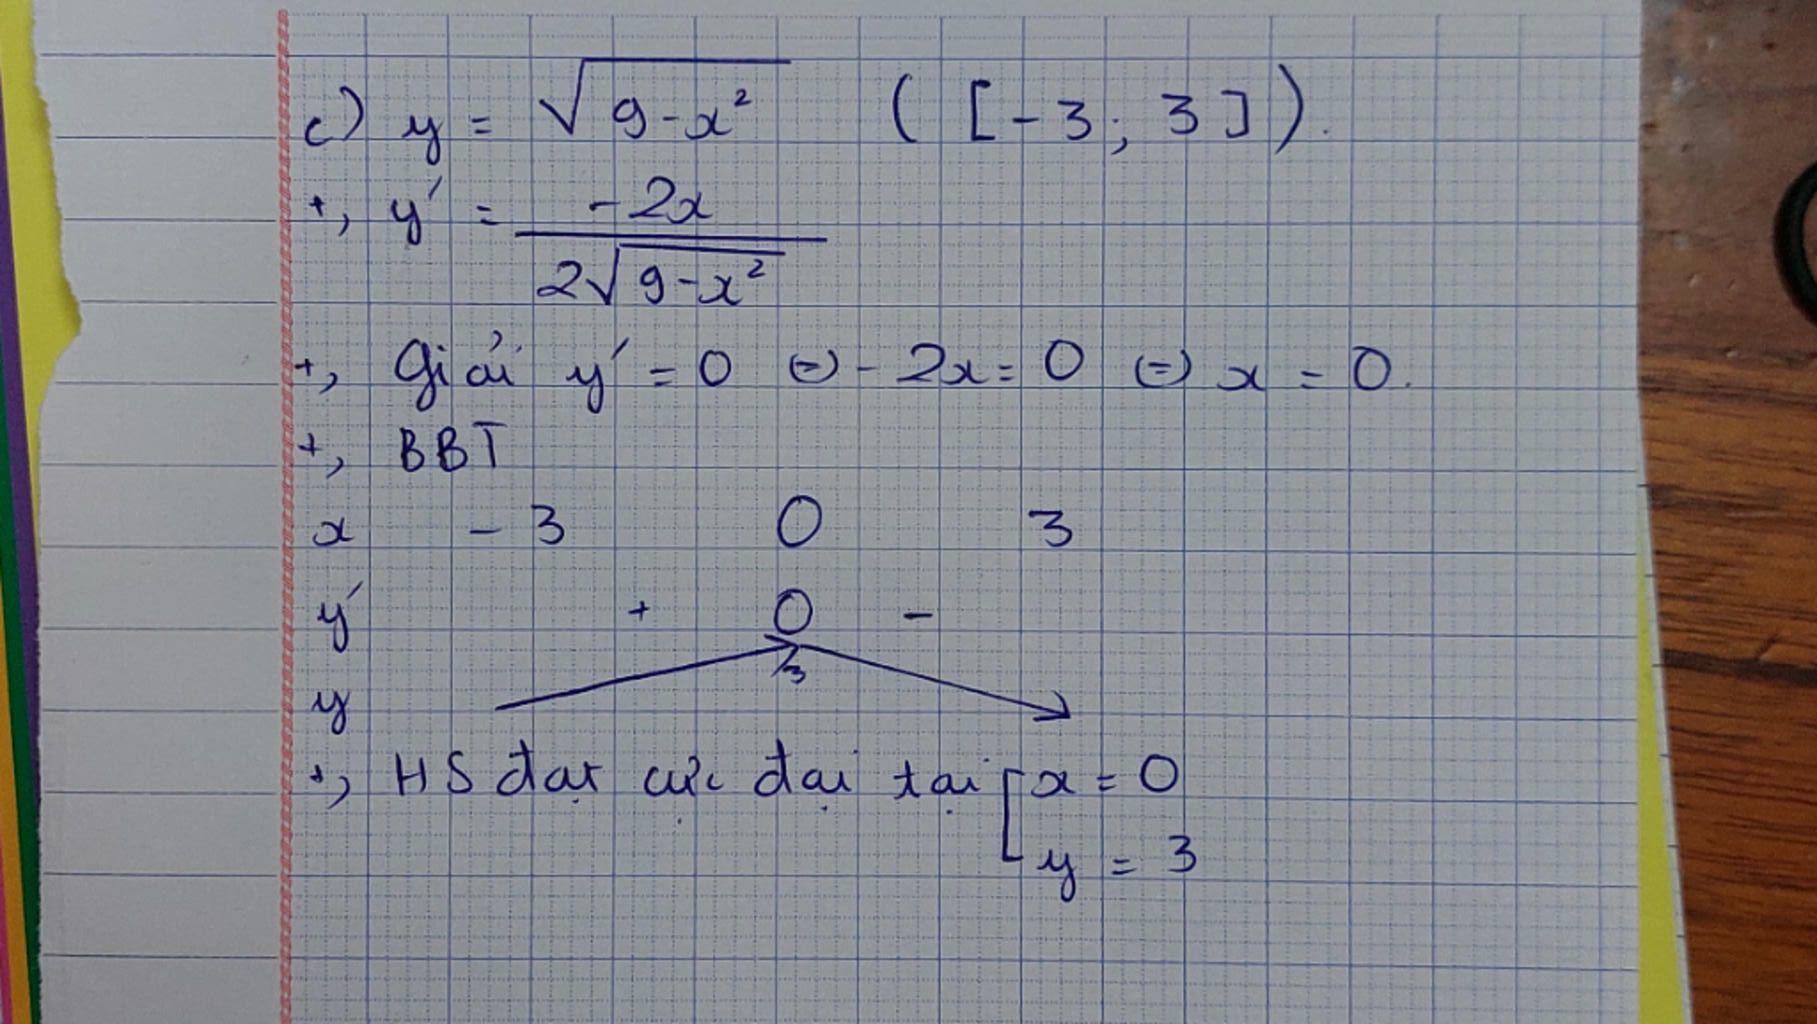 c) y = √(9-x²) ([-3; 3]).
+, y' = -2x / 2√(9-x²)
+, Giải y' = 0 ⇔ -2x = 0 ⇔ x = 0.
+, BBT
x -3 0 3
y' + 0 -
3
y
+, HS đạt cực đại tại [ x = 0
y = 3